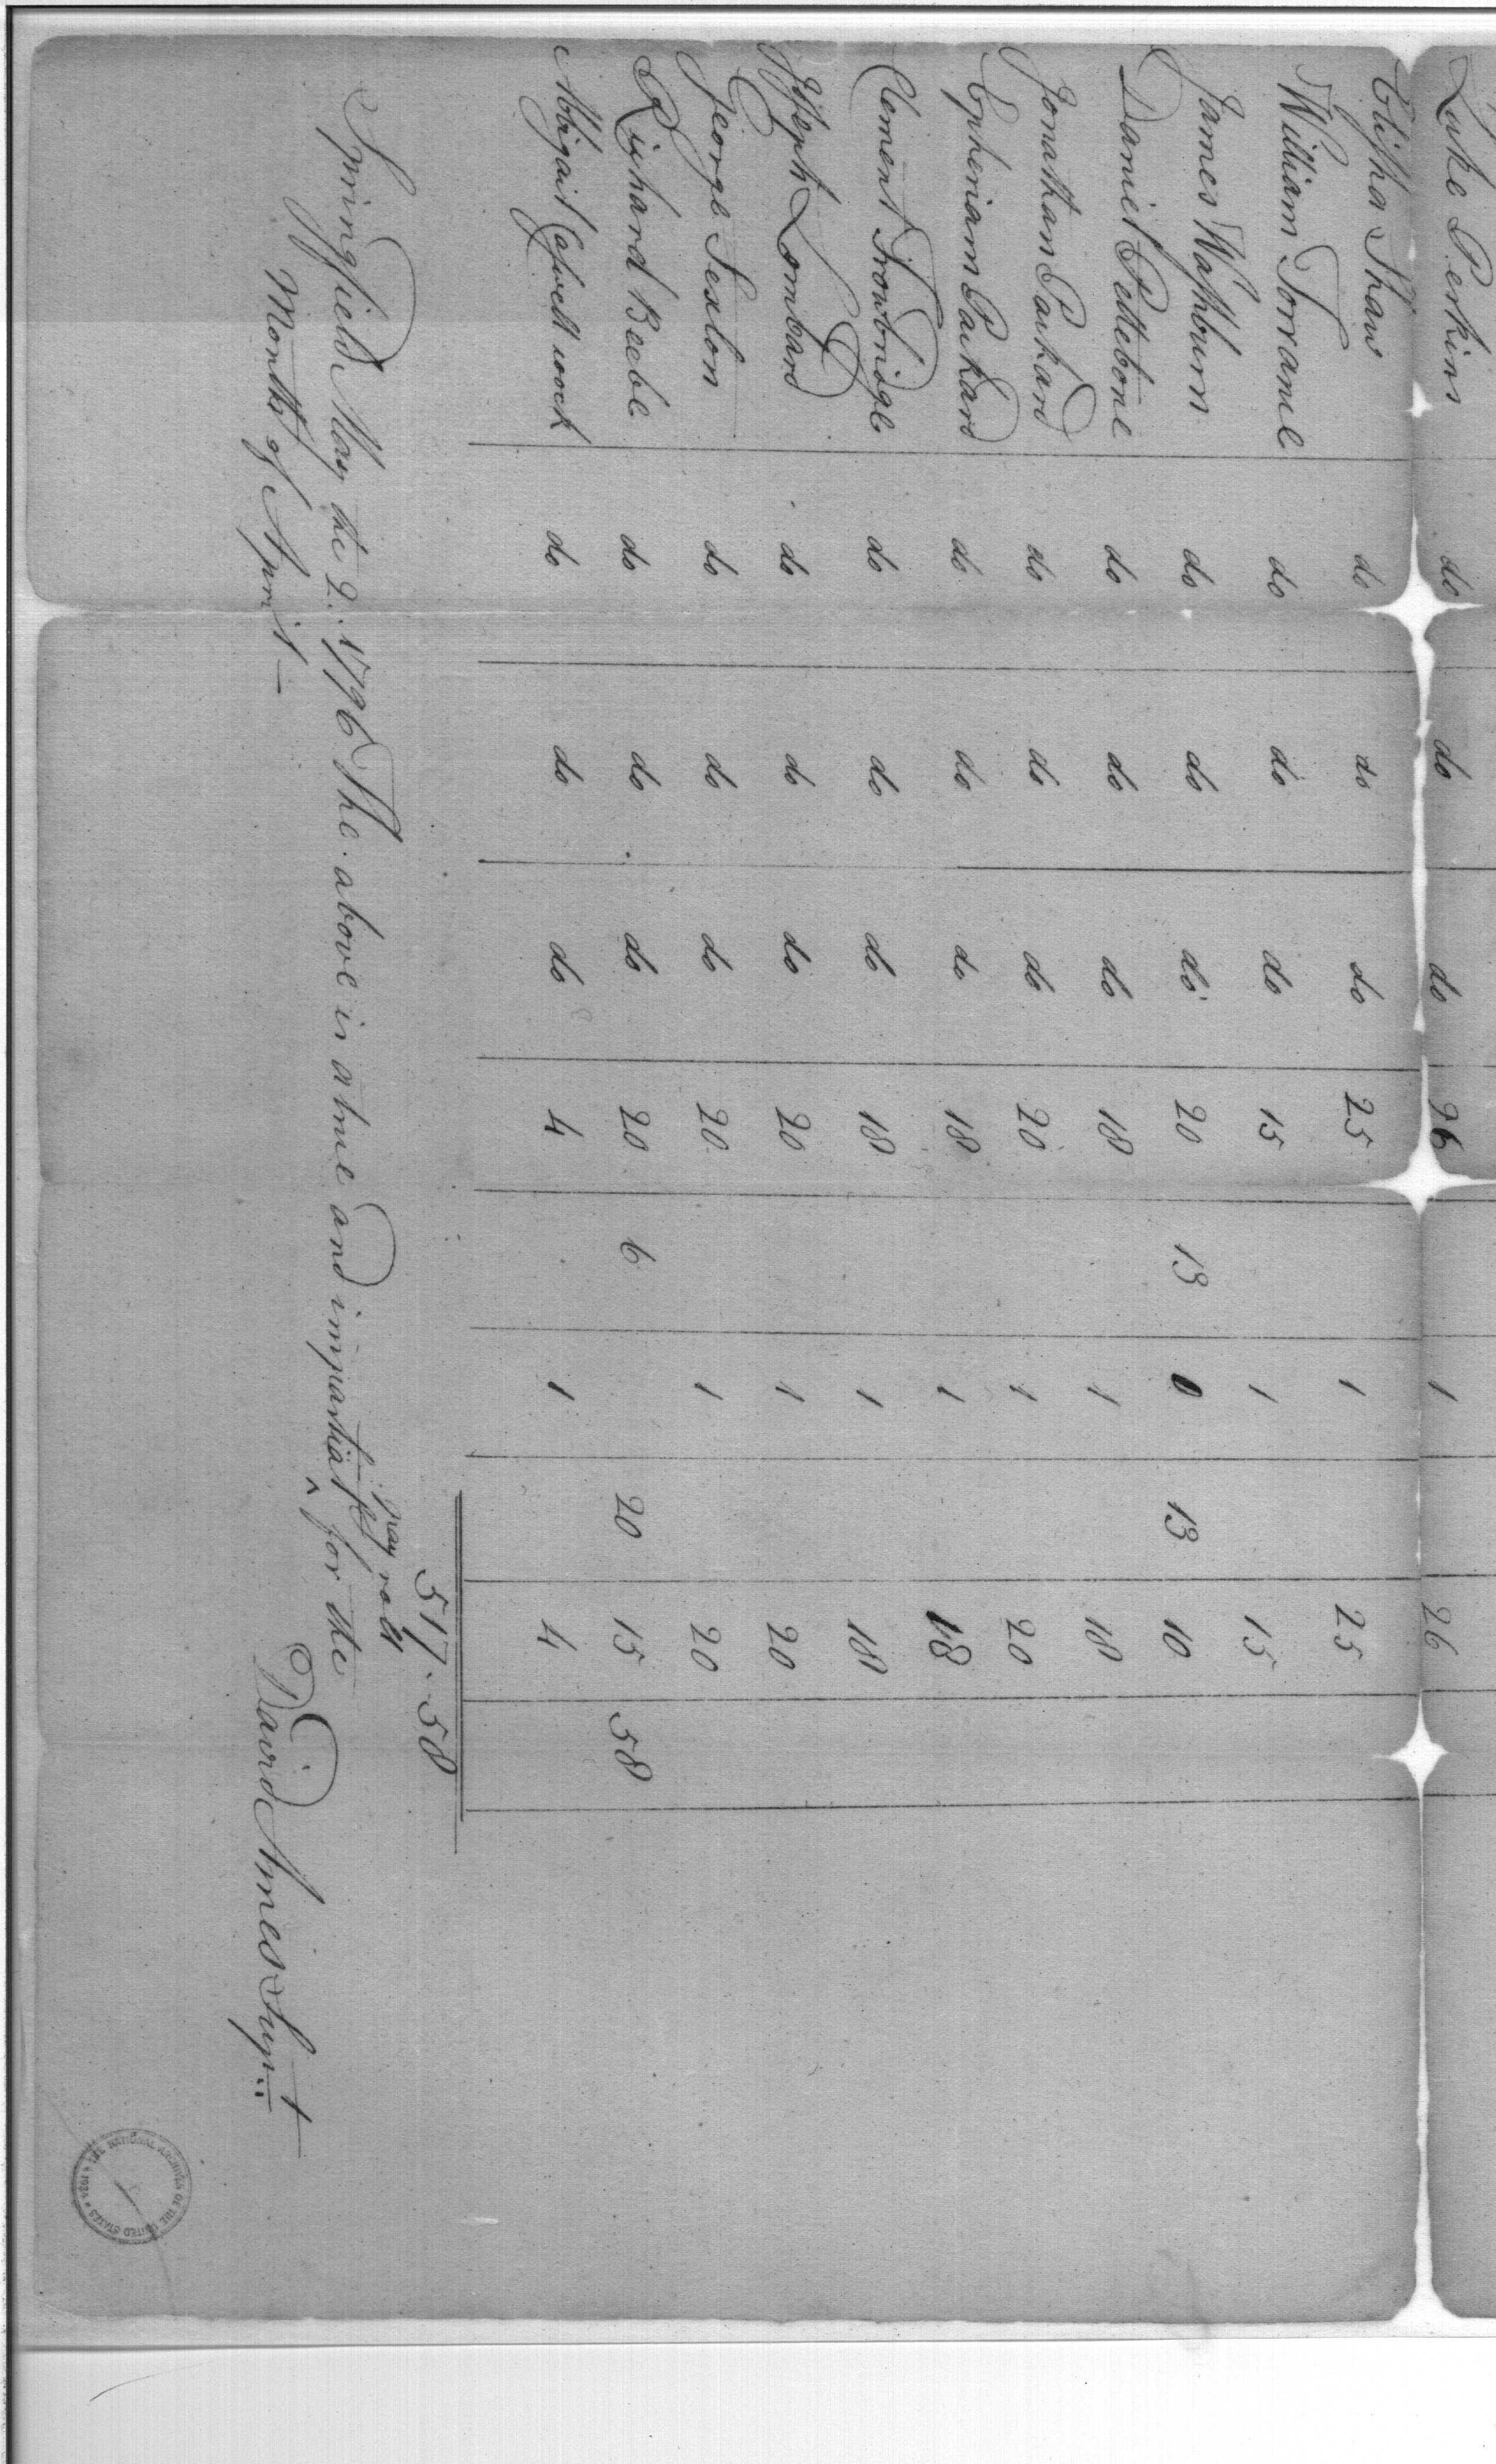 Luke Perkins do do do 26 1 26
Elisha Shaw do do do 25 1 25
William Torrance do do do 15 1 15
James Washburn do do do 20 13 0 13 10
Daniel Pettebone do do do 18 1 18
Jonathan Packard do do do 20 1 20
Epheriam Packard do do do 18 1 18
Clement Trowbridge do do do 18 1 18
Joseph Lombard do do do 20 1 20
George Sexton do do do 20 1 20
Richard Beebe do do do 20 6 20 15 58
Abigail do do do 4 1 4
517.58
pay roll
Springfield May the 2. 1796 The above is a true and impartial ^ for the
Month of April —
David Ames Supt
THE NATIONAL ARCHIVES OF THE UNITED STATES * 1934 *